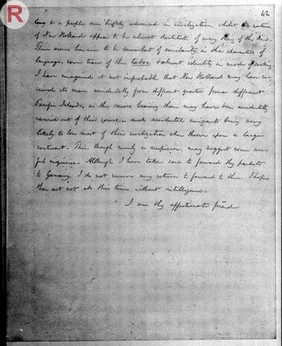 R
42
long to a people more highly advanced in civilization whilst the natives
of New Holland appear to be almost destitute of every thing of the kind.
There seems however to be somewhat of similarity in the character of
language, some traces of this taboo & almost identity in mode of
I have imagined it not improbable that New Holland may have re
ceived its races accidentally from different quarters from different
Pacific Islands, as the canoes bearing them may have been accidentally
carried out of their course & such accidental emigrants being very
likely to lose most of their civilization when thrown upon a larger
continent. This though merely a conjecture, may suggest some use
ful inquiries. Although I have taken care to forward thy packets
to Germany, I do not receive any return to forward to thee I hope
thou art not all this time without intelligence.
I am thy affectionate friend